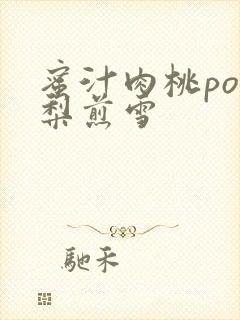 蜜汁肉桃po
梨煎雪
驰禾